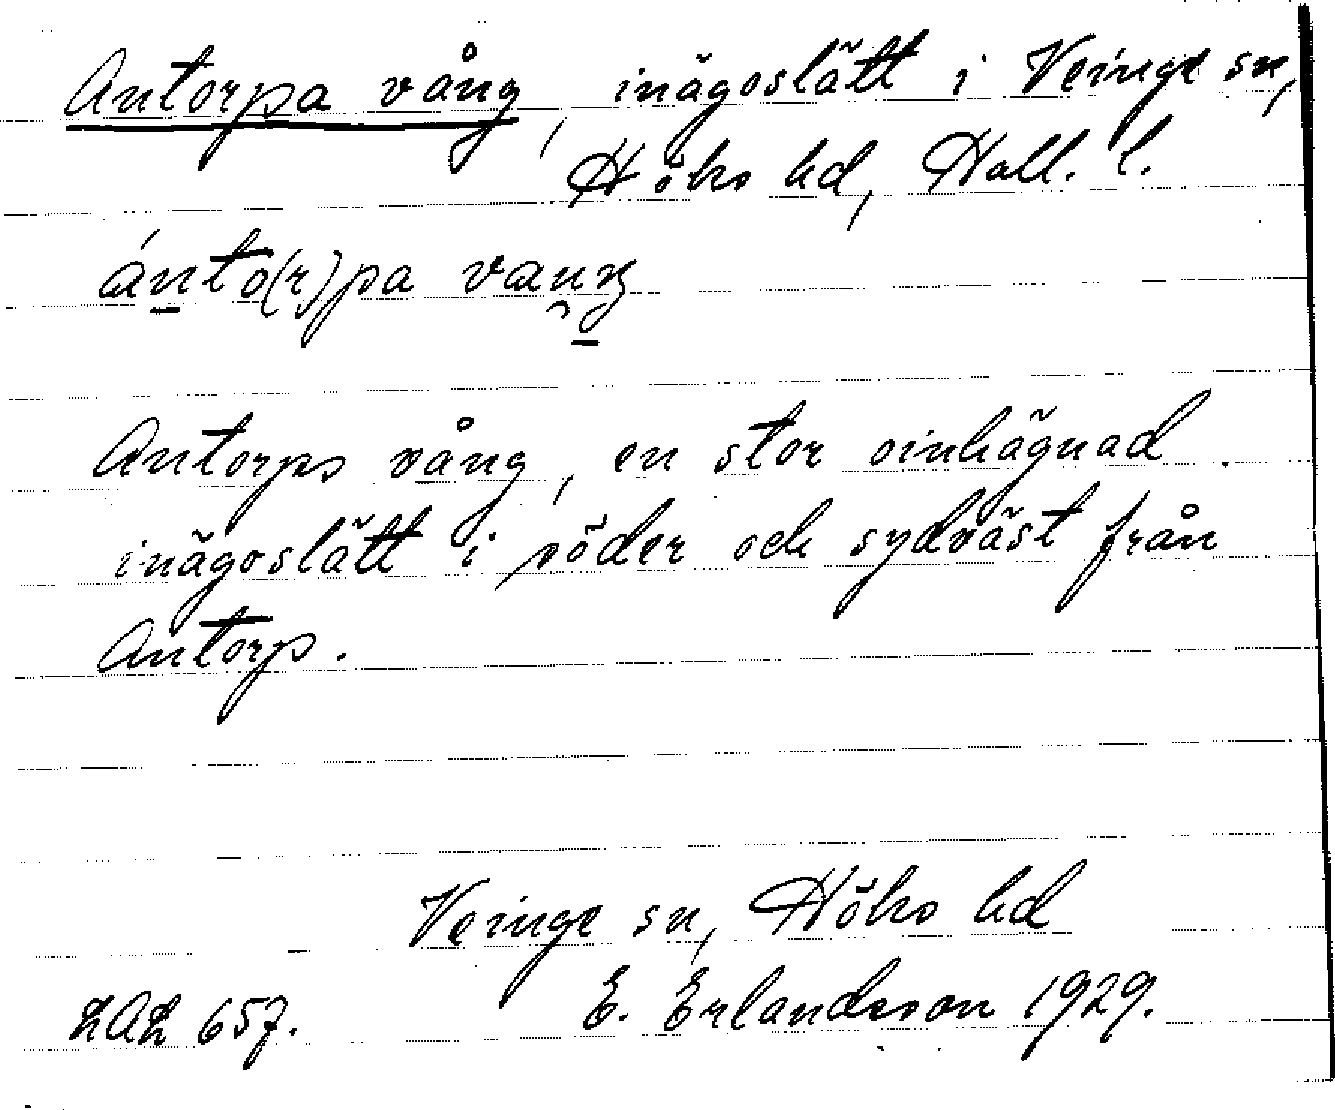 Antorpa vång, inägoslätt i Veinge sn,
Höks hd, Hall. l.
ánto(r)pa vaŋ
Antorps vång, en stor oinhägnad
inägoslätt i söder och sydväst från
Antorp.
Veinge sn, Höks hd
LAL 657. E. Erlandsson 1929.